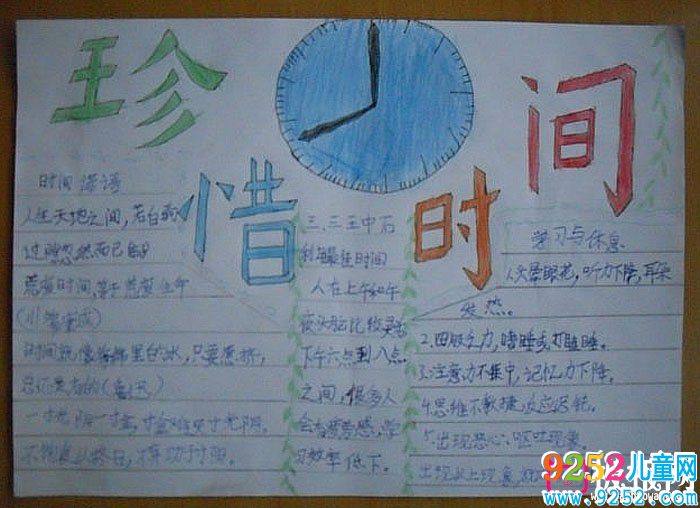 珍惜时间
时间谚语
人生天地之间,若白驹
过隙忽然而已
荒废时间,等于荒废生命
(川端康成)
时间就像海绵里的水,只要愿挤,
总还是有的(鲁迅)
一寸光阴一寸金,寸金难买寸光阴。
三、三五中石
利用最佳时间
人在上午和午
夜头脑比较灵
下午六点到八点
之间,很多人
会有疲劳感,学
习效率低下。
学习与休息
人头晕眼花,听力下降,耳朵
发热。
2.四肢乏力,嗜睡或打瞌睡。
3.注意力不集中,记忆力下降。
4.思维不敏捷,反应迟钝。
5.出现恶心、呕吐现象。
出现以上现象
9252儿童网
www.9252.com